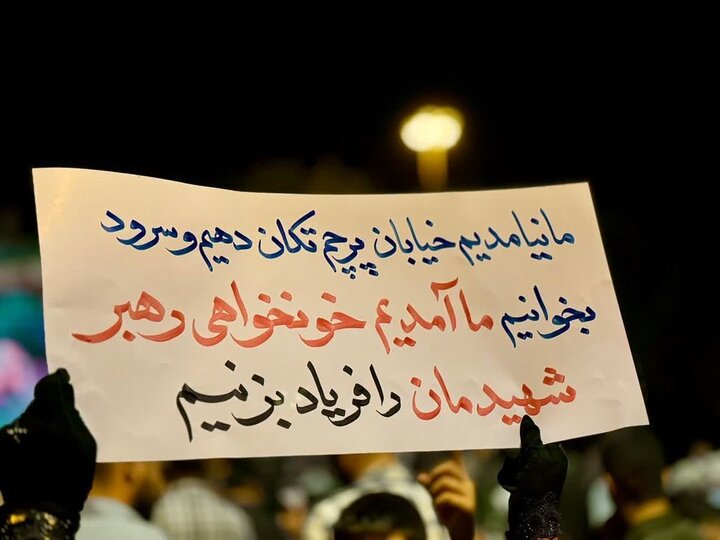 ما نیامدیم خیابان پرچم تکان دهیم و سرود
بخوانیم ما آمدیم خونخواهی رهبر
شهیدمان را فریاد بزنیم